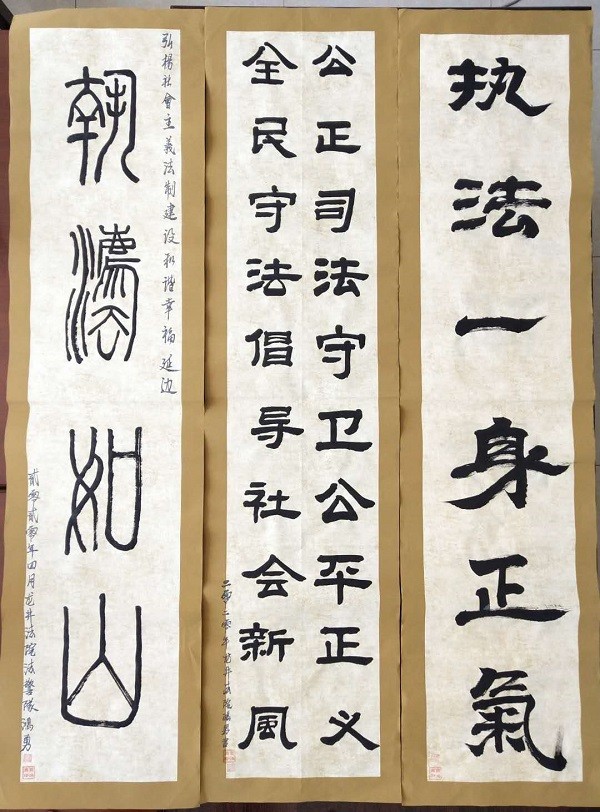 执法一身正氣
公正司法守卫公平正义
全民守法倡导社会新风
二零二零年龙井法院鸿勇书
弘揚社會主義法制建设和谐幸福延边
執灋如山
贰零贰零年四月龙井法院法警队鸿勇